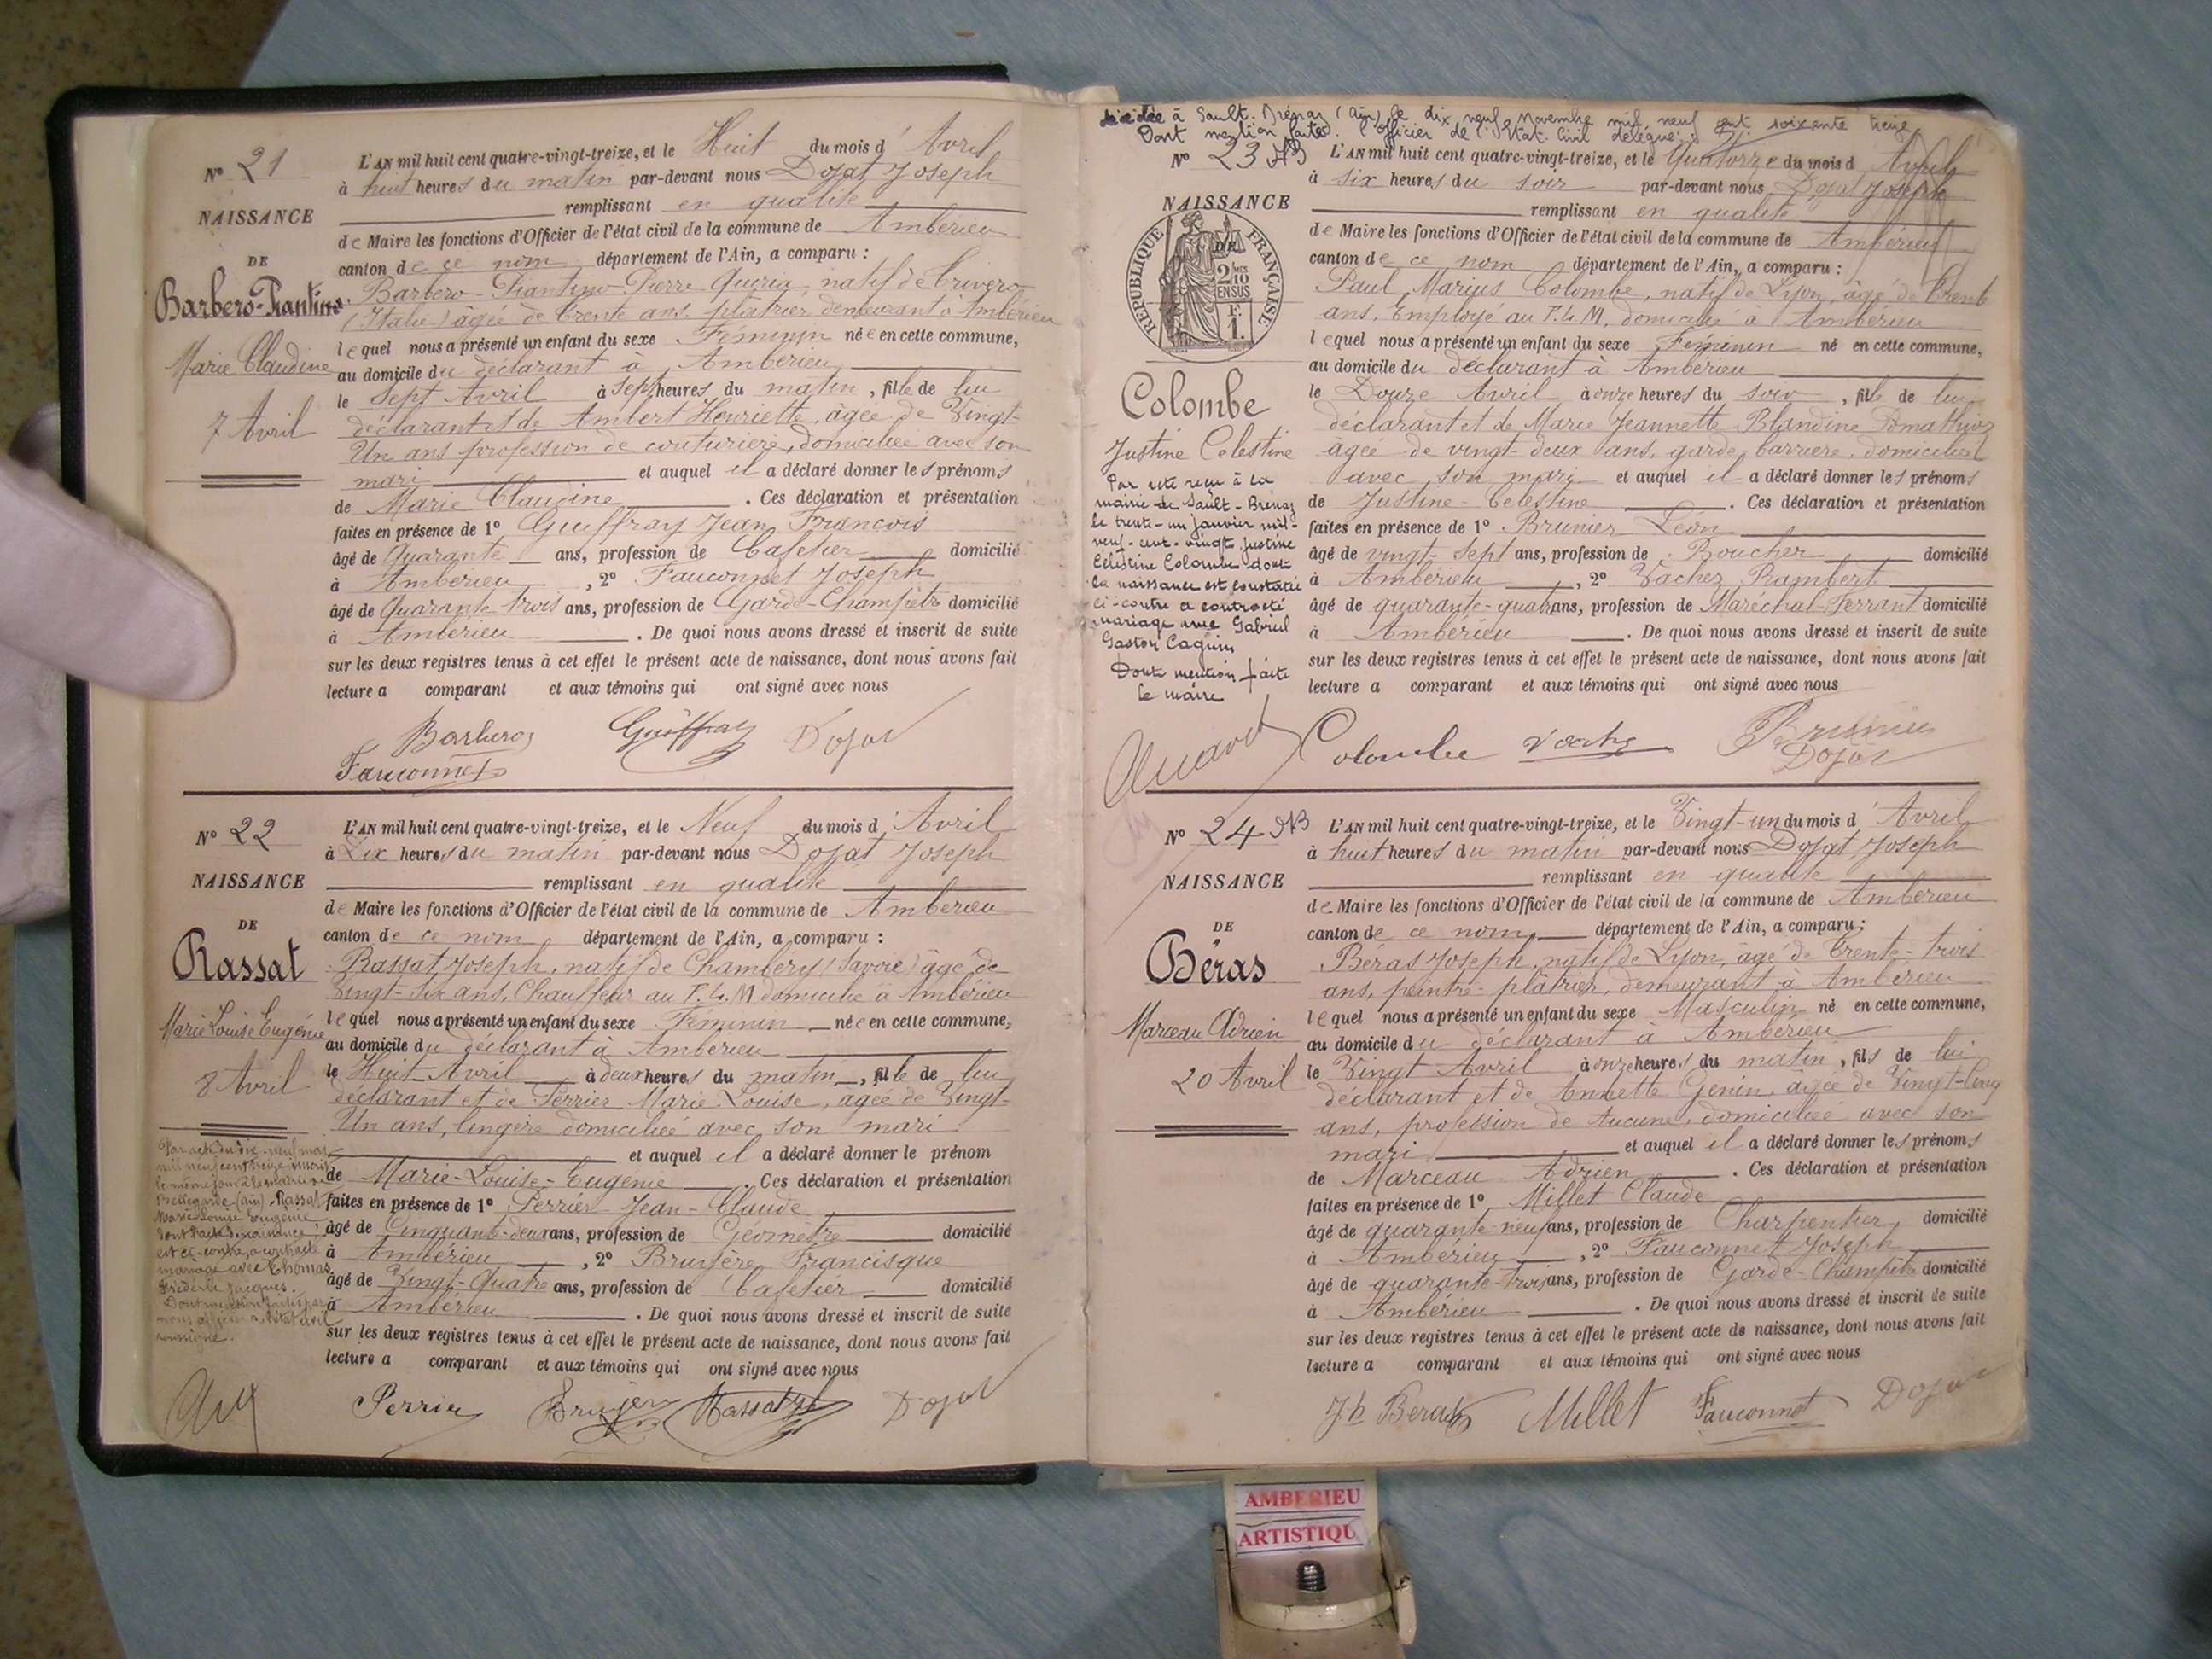 N° 21
NAISSANCE
DE
Barbero-Piantino
Marie Claudine
7 Avril
L'AN mil huit cent quatre-vingt-treize, et le Huit du mois d'Avril
à huit heures du matin par-devant nous Dojat Joseph
remplissant en qualité
de Maire les fonctions d'Officier de l'état civil de la commune de Ambérieu
canton de ce nom département de l'Ain, a comparu :
Barbero-Piantino Pierre natif de
(Italie) âgée de trente ans, plâtrier demeurant à Ambérieu
lequel nous a présenté un enfant du sexe Féminin née en cette commune,
au domicile du déclarant à Ambérieu
le Sept Avril à sept heures du matin, fille de lui
déclarant et de Ambert Henriette, âgée de Vingt-
Un ans profession de couturière, domiciliée avec son
mari et auquel il a déclaré donner les prénoms
de Marie Claudine. Ces déclaration et présentation
faites en présence de 1° Guiffray Jean François
âgé de Quarante ans, profession de Cafetier domicilié
à Ambérieu, 2° Fauconnet Joseph
âgé de Quarante trois ans, profession de Garde-Champêtre domicilié
à Ambérieu. De quoi nous avons dressé et inscrit de suite
sur les deux registres tenus à cet effet le présent acte de naissance, dont nous avons fait
lecture a comparant et aux témoins qui ont signé avec nous
Barbero Guiffray Dojat
Fauconnet
N° 22
NAISSANCE
DE
Rassat
Marie Louise Eugénie
8 Avril
L'AN mil huit cent quatre-vingt-treize, et le Neuf du mois d'Avril
à Dix heures du matin par-devant nous Dojat Joseph
remplissant en qualité
de Maire les fonctions d'Officier de l'état civil de la commune de Ambérieu
canton de ce nom département de l'Ain, a comparu :
Rassat Joseph, natif de Chambéry (Savoie) âgé de
Vingt-Six ans, Chauffeur au P.L.M domicilié à Ambérieu
lequel nous a présenté un enfant du sexe Féminin née en cette commune,
au domicile du déclarant à Ambérieu
le Huit Avril à deux heures du matin, fille de lui
déclarant et de Perrier Marie Louise, âgée de Vingt-
Un ans, lingère domiciliée avec son mari
et auquel il a déclaré donner le prénom
de Marie-Louise-Eugénie. Ces déclaration et présentation
faites en présence de 1° Perrier Jean-Claude
âgé de Cinquante-deux ans, profession de Géomètre domicilié
à Ambérieu, 2° Bruyère Francisque
âgé de Vingt-Quatre ans, profession de Cafetier domicilié
à Ambérieu. De quoi nous avons dressé et inscrit de suite
sur les deux registres tenus à cet effet le présent acte de naissance, dont nous avons fait
lecture a comparant et aux témoins qui ont signé avec nous
Par acte du dix-neuf mai
mil neuf cent treize
le même jour à la mairie de
Bellegarde (ain) Rassat
Marie Louise Eugénie
dont l'acte de naissance
est ci-contre, a contracté
mariage avec Thomas
Frédéric Jacques.
Dont mention faite par
nous officier de l'état civil
soussigné.
Perrier Bruyère Rassat Dojat
décédée à Sault-Brénaz (Ain) le dix neuf Novembre mil neuf cent soixante treize
Dont mention faite. l'officier de l'Etat-Civil délégué :
N° 23
NAISSANCE
DE
RÉPUBLIQUE FRANÇAISE
2/10 EN SUS
F. 1.
Colombe
Justine Celestine
Par acte reçu à la
mairie de Sault-Brénaz
le trente-un janvier mil-
neuf-cent-vingt Justine
Célestine Colombe dont
la naissance est constatée
ci-contre a contracté
mariage avec Gabriel
Gaston Caguin
Dont mention faite
le maire
L'AN mil huit cent quatre-vingt-treize, et le Quatorze du mois d'Avril
à six heures du soir par-devant nous Dojat Joseph
remplissant en qualité
de Maire les fonctions d'Officier de l'état civil de la commune de Ambérieu
canton de ce nom département de l'Ain, a comparu :
Paul Marius Colombe, natif de Lyon, âgé de trente
ans, Employé au P.L.M, domicilié à Ambérieu
lequel nous a présenté un enfant du sexe Féminin né en cette commune,
au domicile du déclarant à Ambérieu
le Douze Avril à onze heures du soir, fille de lui
déclarant et de Marie Jeannette Blandine
âgée de vingt-deux ans, garde-barrière, domiciliée
avec son mari et auquel il a déclaré donner les prénoms
de Justine-Celestine. Ces déclaration et présentation
faites en présence de 1° Brunier Léon
âgé de vingt-sept ans, profession de Boucher domicilié
à Ambérieu, 2° Vachez Rambert
âgé de quarante-quatre ans, profession de Maréchal-Ferrant domicilié
à Ambérieu. De quoi nous avons dressé et inscrit de suite
sur les deux registres tenus à cet effet le présent acte de naissance, dont nous avons fait
lecture a comparant et aux témoins qui ont signé avec nous
Colombe Vachez Brunier
Dojat
N° 24
NAISSANCE
DE
Béras
Marceau Adrien
20 Avril
L'AN mil huit cent quatre-vingt-treize, et le Vingt-un du mois d'Avril
à huit heures du matin par-devant nous Dojat Joseph
remplissant en qualité
de Maire les fonctions d'Officier de l'état civil de la commune de Ambérieu
canton de ce nom département de l'Ain, a comparu :
Béras Joseph, natif de Lyon, âgé de trente-trois
ans, peintre-plâtrier, demeurant à Ambérieu
lequel nous a présenté un enfant du sexe Masculin né en cette commune,
au domicile du déclarant à Ambérieu
le Vingt Avril à onze heures du matin, fils de lui
déclarant et de Annette Genin, âgée de Vingt-Cinq
ans, profession de Aucune, domiciliée avec son
mari et auquel il a déclaré donner les prénoms
de Marceau Adrien. Ces déclaration et présentation
faites en présence de 1° Millet Claude
âgé de quarante-neuf ans, profession de Charpentier domicilié
à Ambérieu, 2° Fauconnet Joseph
âgé de quarante-trois ans, profession de Garde-Champêtre domicilié
à Ambérieu. De quoi nous avons dressé et inscrit de suite
sur les deux registres tenus à cet effet le présent acte de naissance, dont nous avons fait
lecture a comparant et aux témoins qui ont signé avec nous
Jh Beras Millet Fauconnet Dojat
AMBERIEU
ARTISTIQU